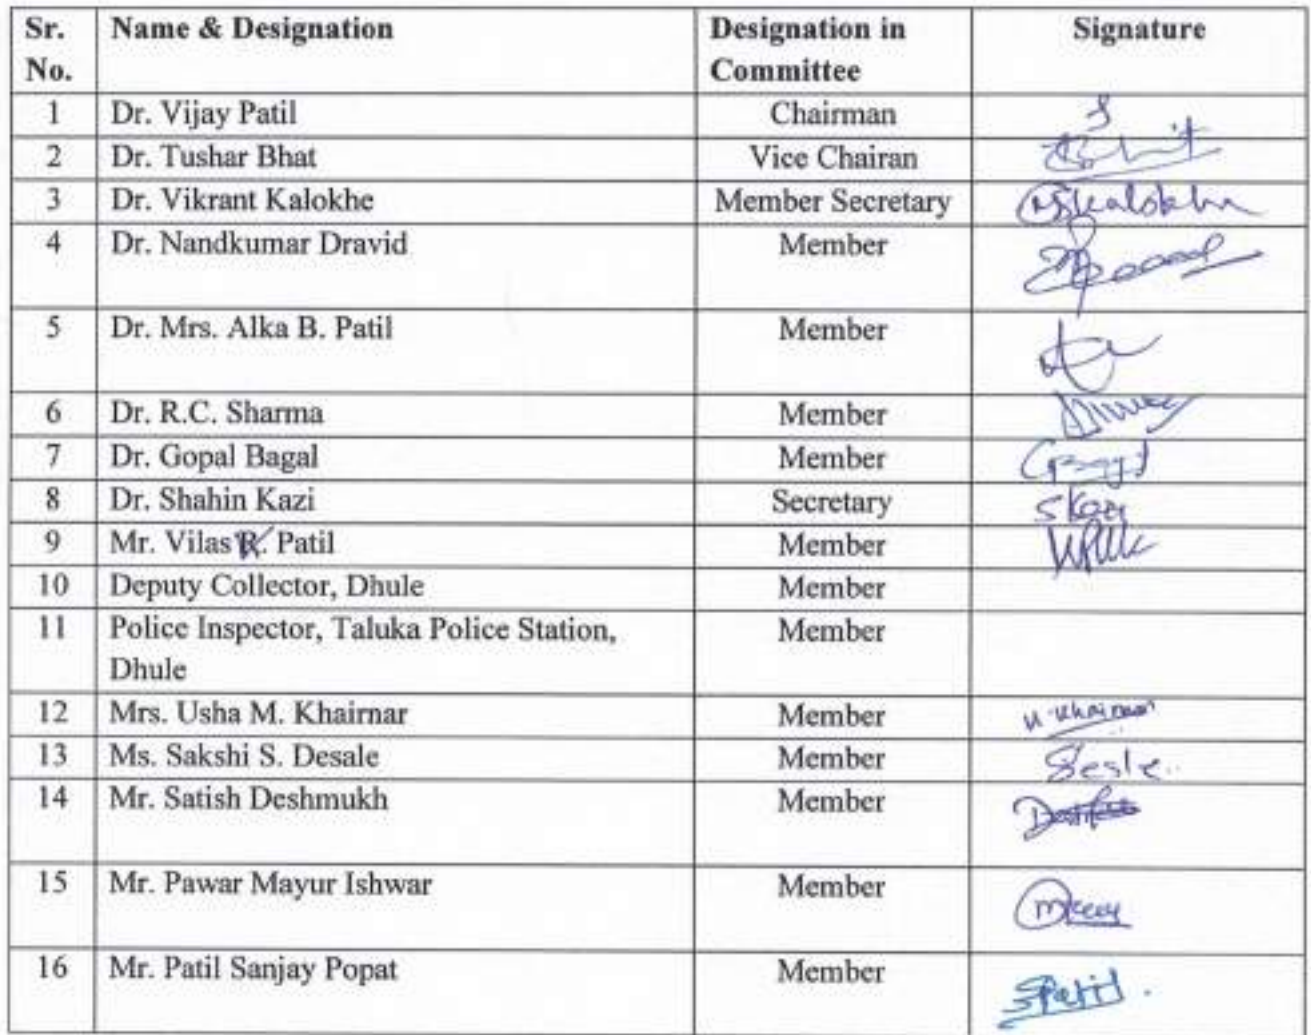 Sr. No. Name & Designation Designation in Committee Signature
1 Dr. Vijay Patil Chairman
2 Dr. Tushar Bhat Vice Chairan
3 Dr. Vikrant Kalokhe Member Secretary
4 Dr. Nandkumar Dravid Member
5 Dr. Mrs. Alka B. Patil Member
6 Dr. R.C. Sharma Member
7 Dr. Gopal Bagal Member
8 Dr. Shahin Kazi Secretary SKazi
9 Mr. Vilas R. Patil Member
10 Deputy Collector, Dhule Member
11 Police Inspector, Taluka Police Station, Member
Dhule
12 Mrs. Usha M. Khairnar Member U. Khairnar
13 Ms. Sakshi S. Desale Member
14 Mr. Satish Deshmukh Member
15 Mr. Pawar Mayur Ishwar Member
16 Mr. Patil Sanjay Popat Member SPatil.